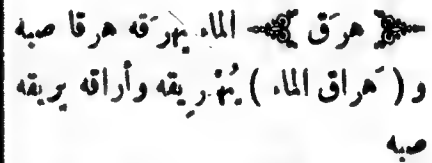 ﴿ هرَق ﴾ الماء يهرَقه هرقا صبه
و ( هَراق الماء ) يُهَرِيقه وأراقه يريقه
صبه